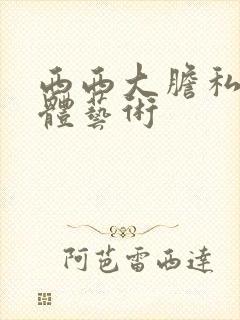 西西大膽私
體藝術
阿芭雷西達